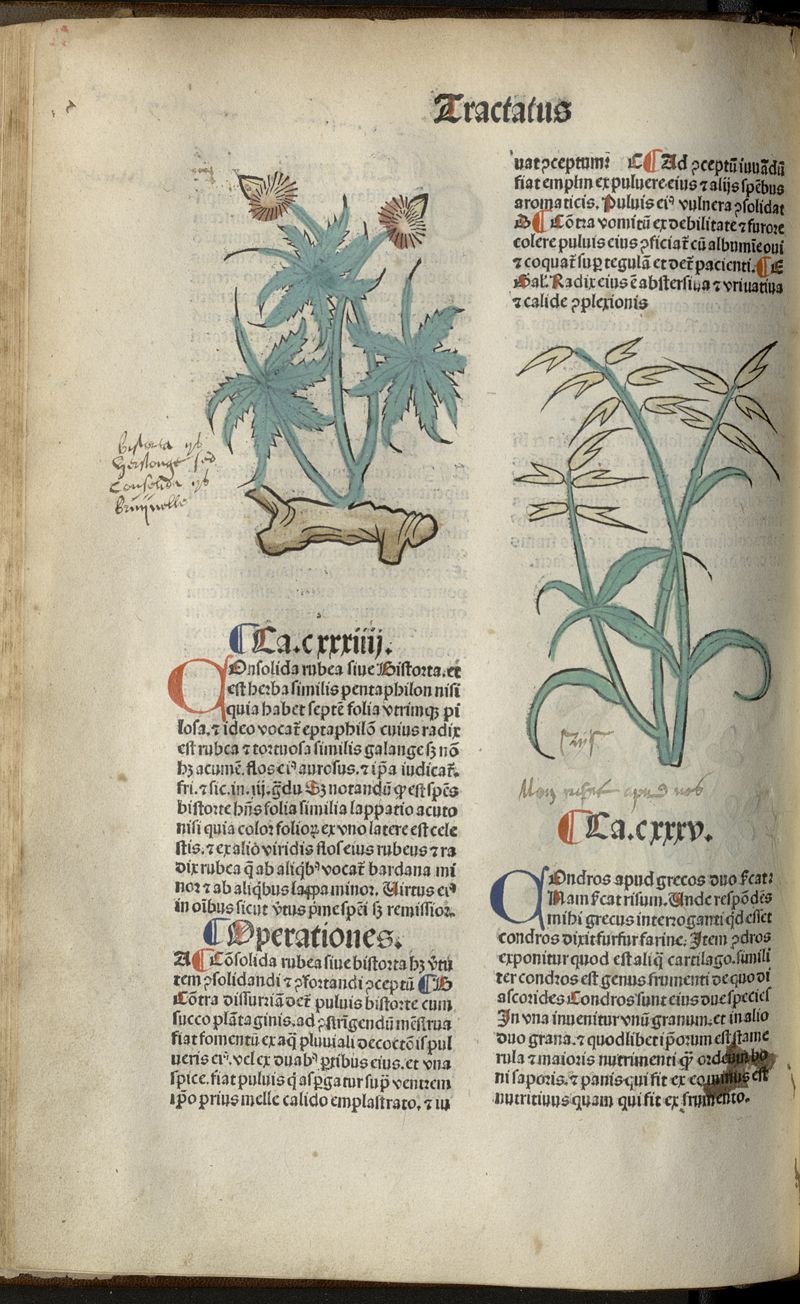 Tractatus
bistorta
Consolida
Brunelle
¶Ca.cxxxiiij.
COnsolida rubea siue Bistorta.et
est herba similis pentaphilon nisi
quia habet septē folia vtrimqꝫ pi
losa.⁊ ideo vocat̄ eptaphilō cuius radix
est rubea ⁊ tortuosa similis galange sꝫ nō
hꝫ acumē.flos eiꝰ aurosus.⁊ ip̄a iudicat̄.
fri.⁊ sic.in.iij.ḡdu. Sꝫ notandū ꝙ est sp̄es
bistorte hn̄s folia similia lappatio acuto
nisi quia color folioꝝ ex vno latere est cele
stis.⁊ ex alio viridis flos eius rubeus ⁊ ra
dix rubea q̄ ab aliqbꝰ vocat̄ bardana mi
nor ⁊ ab aliqbus lappa minor. Uirtus eiꝰ
in oībus sicut v̄tus p̄me sp̄ei sꝫ remissior.
¶Operationes.
A¶Cōsolida rubea siue bistorta hꝫ v̄tu
tem ꝯsolidandi ⁊ ꝯfortandi ꝯceptū ¶B
Cōtra dissuriā det̄ puluis bistorte cum
succo plātaginis.ad ꝯstrīgendū mēstrua
fiat fomentū ex aq̄ pluuiali decoctōis pul
ueris eiꝰ.vel ex duabꝰ ꝑtibus eius.et vna
spice.fiat puluis q̄ aspgatur sup̄ ventrem
ip̄o prius melle calido emplastrato.⁊ iu
uat ꝯceptum: C¶Ad ꝯceptū iuuādū
fiat emplm̄ ex puluere eius ⁊ alijs sp̄ebus
aromaticis. Puluis eiꝰ vulnera ꝯsolidat
D¶Cōtra vomitū ex debilitate ⁊ furore
colere puluis eius ꝯficiat̄ cū albumīe oui
⁊ coquat̄ sup̄ tegulā et det̄ pacienti.¶E
Gal. Radix eius ē abstersiua ⁊ vritiua
⁊ calide ꝯplexionis
apud nos
¶Ca.cxxxv.
COndros apud grecos duo s̄cat:
Nam s̄cat risum. Unde respōdēs
mihi grecus interroganti qd esset
condros dixit furfur farine. Item ꝯdros
exponitur quod est aliq̄ cartilago.simili
ter condros est genus frumenti de quo di
ascorides Condros sunt eius due species
In vna inuenitur vnū granum.et in alio
duo grana.⁊ quodlibet ip̄orum est stame
rula ⁊ maioris nutrimenti q̄ꝫ ordeum bo
ni saporis.⁊ panis qui fit ex eo minus est
nutritiuus quam qui fit ex frumento.